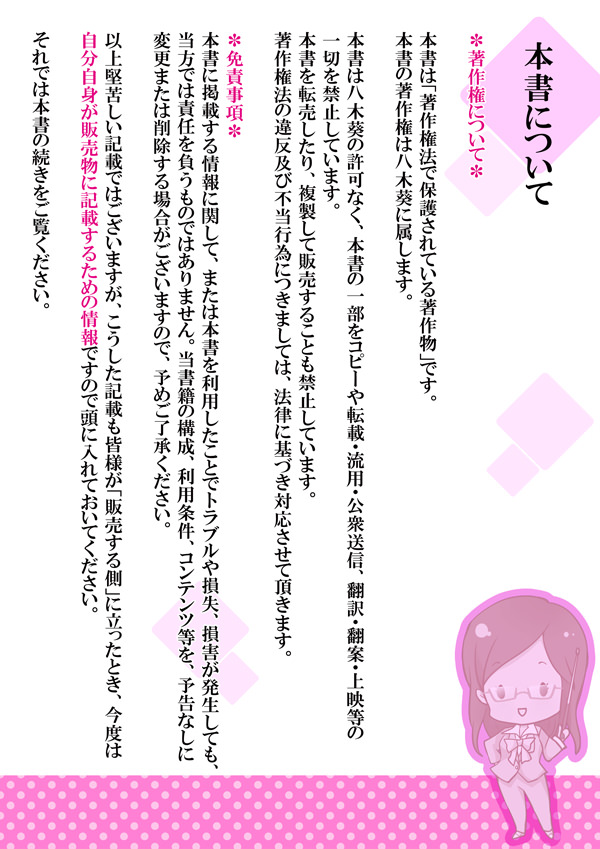 本書について
＊著作権について＊
本書は「著作権法で保護されている著作物」です。
本書の著作権は八木葵に属します。
本書は八木葵の許可なく、本書の一部をコピーや転載・流用・公衆送信、翻訳・翻案・上映等の
一切を禁止しています。
本書を転売したり、複製して販売することも禁止しています。
著作権法の違反及び不当行為につきましては、法律に基づき対応させて頂きます。
＊免責事項＊
本書に掲載する情報に関して、または本書を利用したことでトラブルや損失、損害が発生しても、
当方では責任を負うものではありません。当書籍の構成、利用条件、コンテンツ等を、予告なしに
変更または削除する場合がございますので、予めご了承ください。
以上堅苦しい記載ではございますが、こうした記載も皆様が「販売する側」に立ったとき、今度は
自分自身が販売物に記載するための情報ですので頭に入れておいてください。
それでは本書の続きをご覧ください。